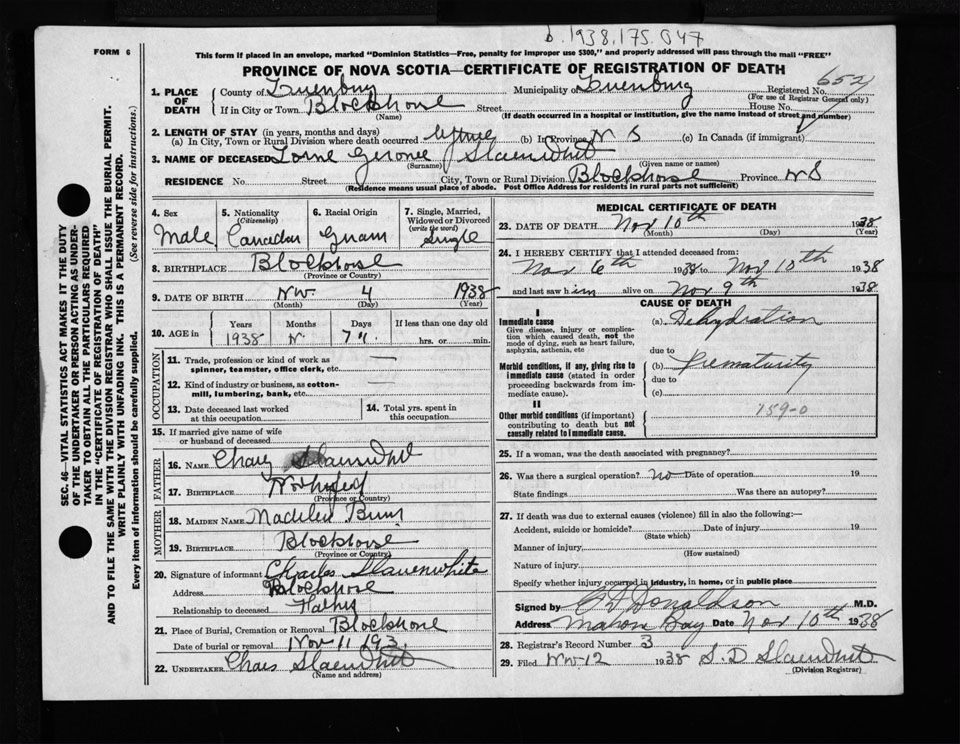 b.1938.175.047
FORM 6
This form if placed in an envelope, marked "Dominion Statistics—Free, penalty for improper use $300," and properly addressed will pass through the mail "FREE"
PROVINCE OF NOVA SCOTIA—CERTIFICATE OF REGISTRATION OF DEATH
SEC. 46—VITAL STATISTICS ACT MAKES IT THE DUTY
OF THE UNDERTAKER OR PERSON ACTING AS UNDER-
TAKER TO OBTAIN ALL THE PARTICULARS REQUIRED
IN THE "CERTIFICATE OF REGISTRATION OF DEATH"
AND TO FILE THE SAME WITH THE DIVISION REGISTRAR WHO SHALL ISSUE THE BURIAL PERMIT.
WRITE PLAINLY WITH UNFADING INK. THIS IS A PERMANENT RECORD.
Every item of information should be carefully supplied. (See reverse side for instructions.)
1. PLACE OF DEATH County of Lunenburg Municipality of Lunenburg Registered No. 652
(For use of Registrar General only)
If in City or Town Blockhouse Street House No.
(Name) (If death occurred in a hospital or institution, give the name instead of street and number)
2. LENGTH OF STAY (in years, months and days)
(a) In City, Town or Rural Division where death occurred lifetime (b) In Province N S (c) In Canada (if immigrant)
3. NAME OF DECEASED Lorne Slaenwhit
(Surname) (Given name or names)
RESIDENCE No. Street City, Town or Rural Division Blockhouse Province N S
(Residence means usual place of abode. Post Office Address for residents in rural parts not sufficient)
4. Sex 5. Nationality (Citizenship) 6. Racial Origin 7. Single, Married, Widowed or Divorced (write the word)
Male Canadian Single
8. BIRTHPLACE Blockhouse
(Province or Country)
9. DATE OF BIRTH Nov. 4 1938
(Month) (Day) (Year)
10. AGE in Years Months Days If less than one day old
1938 N. hrs. or min.
OCCUPATION
11. Trade, profession or kind of work as spinner, teamster, office clerk, etc. —
12. Kind of industry or business, as cotton-mill, lumbering, bank, etc. —
13. Date deceased last worked at this occupation 14. Total yrs. spent in this occupation
15. If married give name of wife or husband of deceased
FATHER
16. NAME Slaenwhit
17. BIRTHPLACE
(Province or Country)
MOTHER
18. MAIDEN NAME
19. BIRTHPLACE Blockhouse
(Province or Country)
20. Signature of informant Charles Slauenwhite
Address Blockhouse
Relationship to deceased Father
21. Place of Burial, Cremation or Removal Blockhouse
Date of burial or removal Nov 11 193
22. UNDERTAKER Chas Slaenwhit
(Name and address)
MEDICAL CERTIFICATE OF DEATH
23. DATE OF DEATH Nov 10th 1938
(Month) (Day) (Year)
24. I HEREBY CERTIFY that I attended deceased from:
Nov 6th 1938 to Nov 10th 1938
and last saw him alive on Nov 9th 1938
CAUSE OF DEATH
I
Immediate cause (a) Dehydration
Give disease, injury or complication which caused death, not the mode of dying, such as heart failure, asphyxia, asthenia, etc due to
Morbid conditions, if any, giving rise to immediate cause (stated in order proceeding backwards from immediate cause). (b) Prematurity
due to
(c)
II
159-0
Other morbid conditions (if important) contributing to death but not causally related to immediate cause.
25. If a woman, was the death associated with pregnancy?
26. Was there a surgical operation? no Date of operation 19
State findings Was there an autopsy?
27. If death was due to external causes (violence) fill in also the following:—
Accident, suicide or homicide? Date of injury 19
(State which)
Manner of injury
(How sustained)
Nature of injury
Specify whether injury occurred in industry, in home, or in public place
Signed by Donaldson M.D.
Address Mahone Bay Date Nov 10th 1938
28. Registrar's Record Number 3
29. Filed Nov 12 1938 S. D Slaenwhit
(Division Registrar)